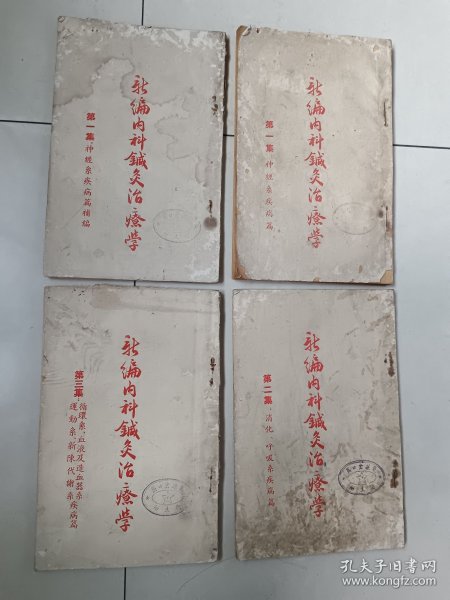 新編内科鍼灸治療學
第一集：神經系疾病篇補編
新編内科鍼灸治療學
第一集：神經系疾病篇
新編内科鍼灸治療學
第三集：循環系、血液及造血器系
運動系、新陳代謝系疾病篇
新編内科鍼灸治療學
第二集：消化、呼吸系疾病篇
孔夫子旧书网
www.kongfz.com